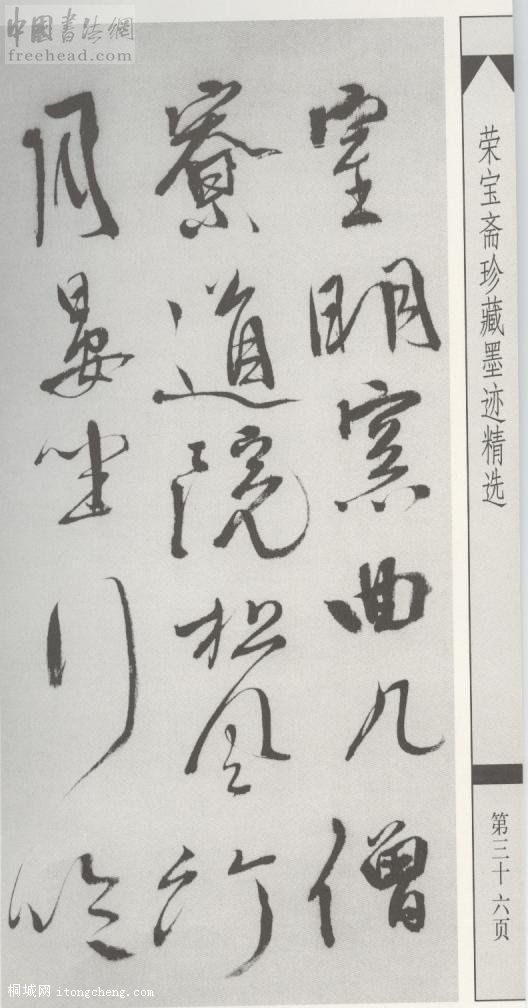 中國書法網
freehead.com
荣宝斋珍藏墨迹精选
第三十六页
室明窓曲几僧
寮道院松風竹
月晏坐行吟
桐城网 itongcheng.com